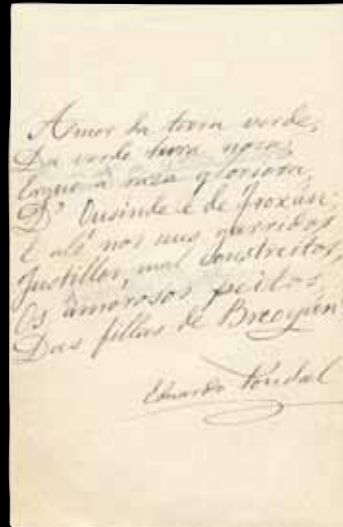 Amor da terra verde,
Da verde terra nosa,
Erguê â raza gloriosa,
D' Ousinde e de Froxán;
E aló nos seus garridos
Justillos, mal constreitos,
Os amorosos peitos,
Das fillas de Breogán
Eduardo Pondal